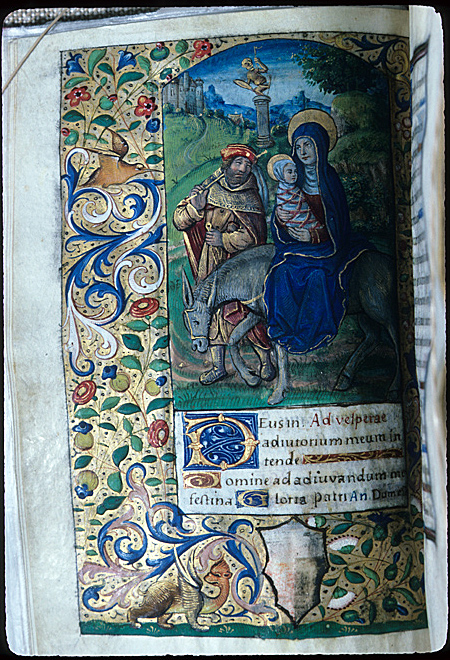 Deus in Ad vesperae
adiutorium meum in
tende
Domine ad adiuvandum me
festina Gloria patri An. Dum